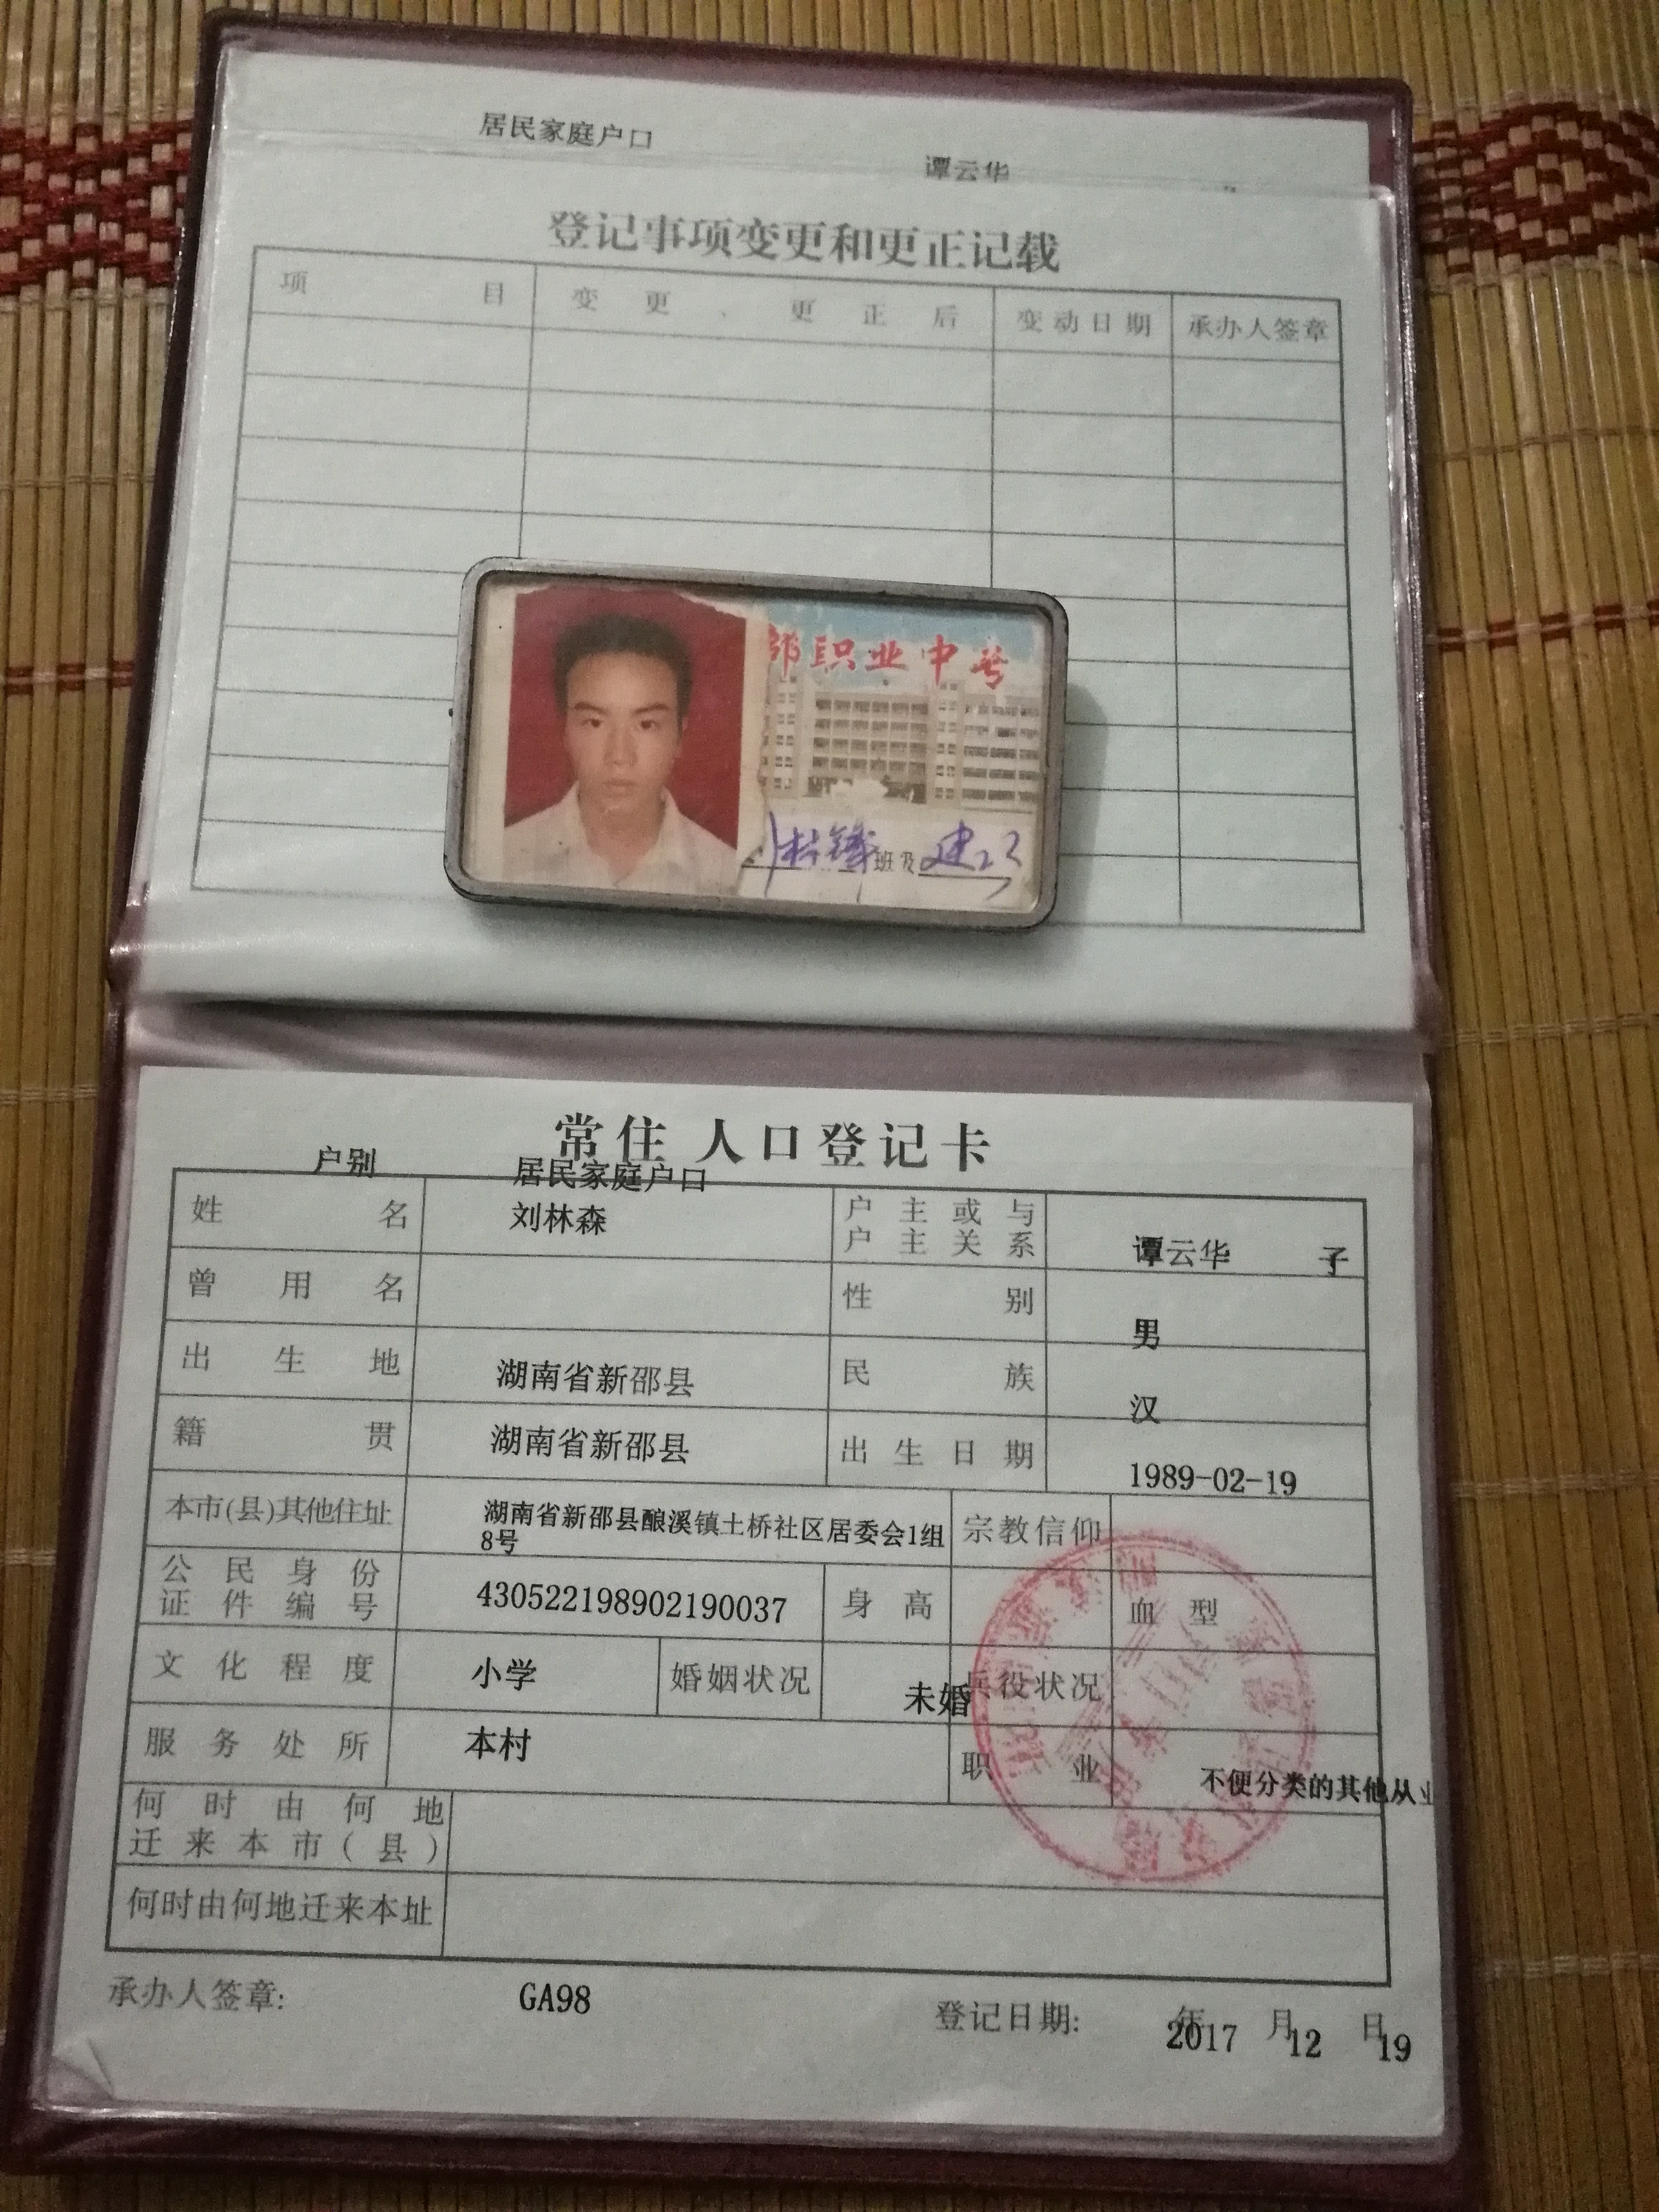 居民家庭户口
谭云华
登记事项变更和更正记载
项目 变更、更正后 变动日期 承办人签章
邵职业中学
班及
常住人口登记卡
户别 居民家庭户口
姓名 刘林森 户主或与户主关系 谭云华 子
曾用名 性别 男
出生地 湖南省新邵县 民族 汉
籍贯 湖南省新邵县 出生日期 1989-02-19
本市(县)其他住址 湖南省新邵县酿溪镇土桥社区居委会1组
8号 宗教信仰
公民身份证件编号 430522198902190037 身高 血型
文化程度 小学 婚姻状况 未婚 兵役状况
服务处所 本村 职业 不便分类的其他从业
何时由何地
迁来本市(县)
何时由何地迁来本址
承办人签章: GA98 登记日期: 2017年12月19日